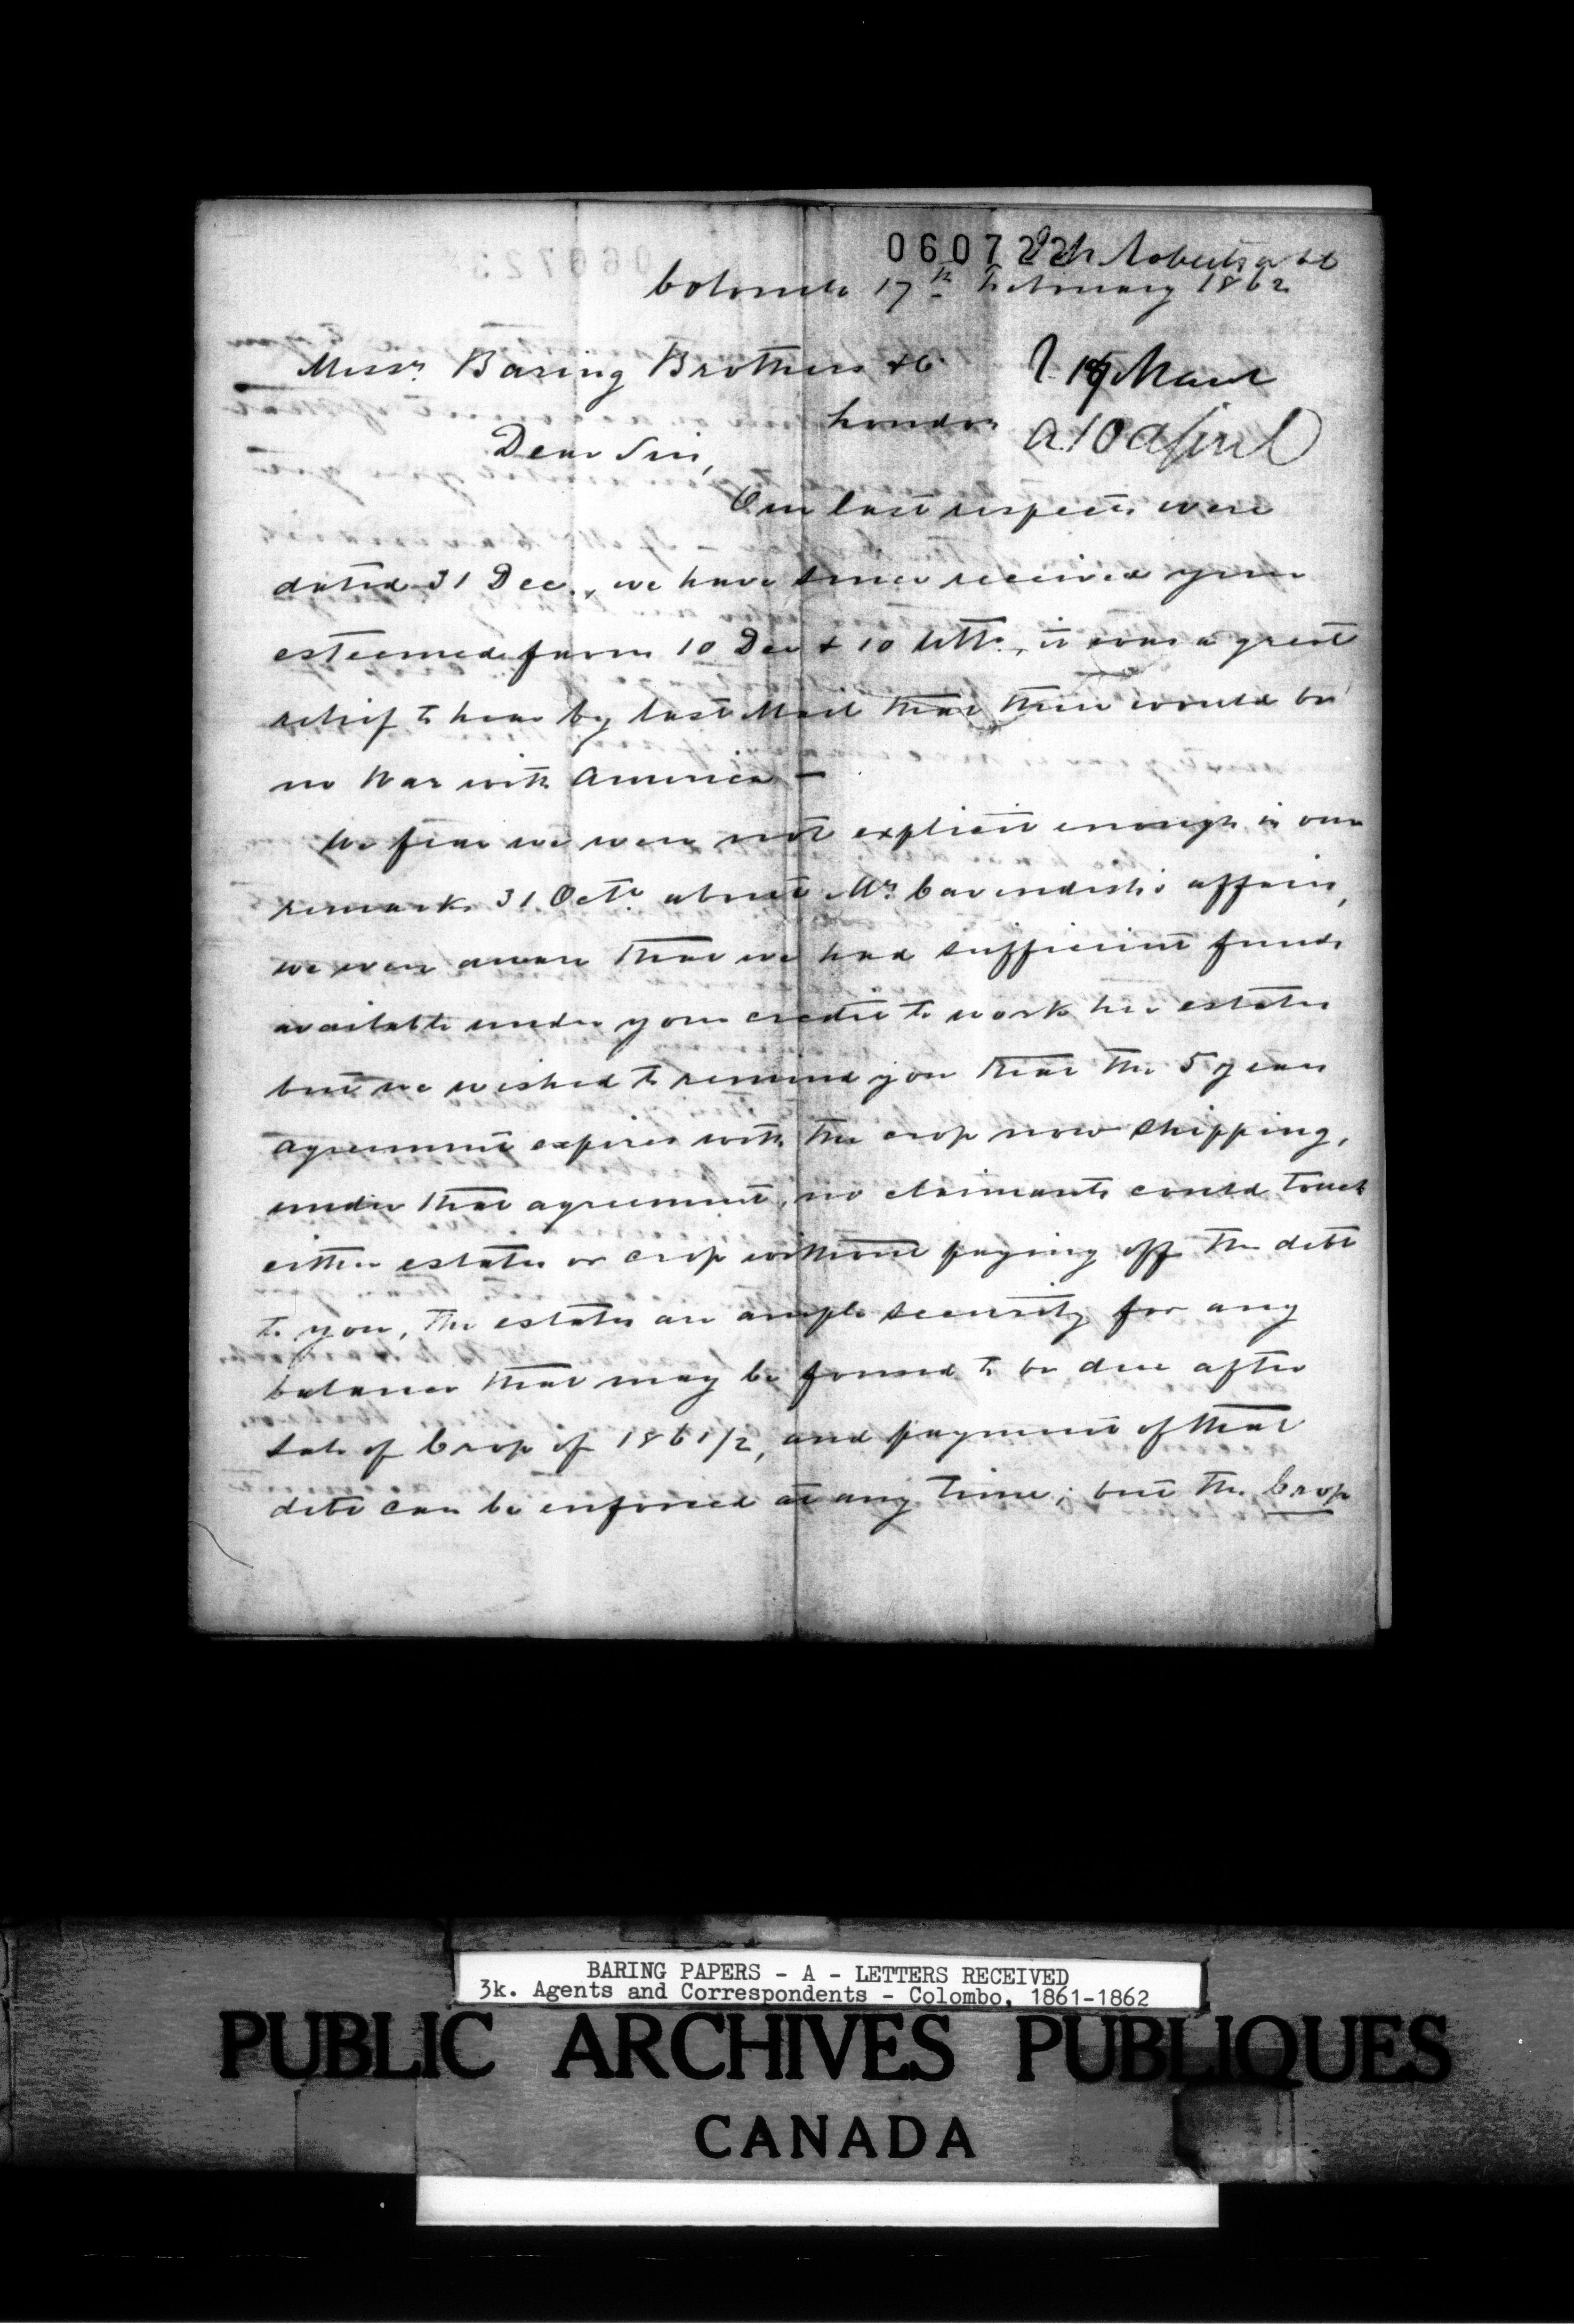 060722
Robertson & Co
Colombo 17th February 1862
Messrs Baring Brothers & Co
London
R 18 March
A 10 April
Dear Sirs,
Our last respects were
dated 31 Dec., we have since received your
esteemed favors 10 Dec & 10 Ulto., it was a great
relief to hear by last Mail that there would be
no War with America —
We fear we were not explicit enough in our
remarks 31 Octr. about Mr. Cavendish's affairs,
we were aware that we had sufficient funds
available under your credit to work his estates
but we wished to remind you that the 5 years
agreement expires with the crop now shipping,
under that agreement, no claimants could touch
either estates or crop without paying off the debt
to you, the estates are ample security for any
balance that may be found to be due after
sale of Crop of 1861/2, and payment of that
debt can be enforced at any time; but the Crop
BARING PAPERS - A - LETTERS RECEIVED
3k. Agents and Correspondents - Colombo, 1861-1862
PUBLIC ARCHIVES PUBLIQUES
CANADA